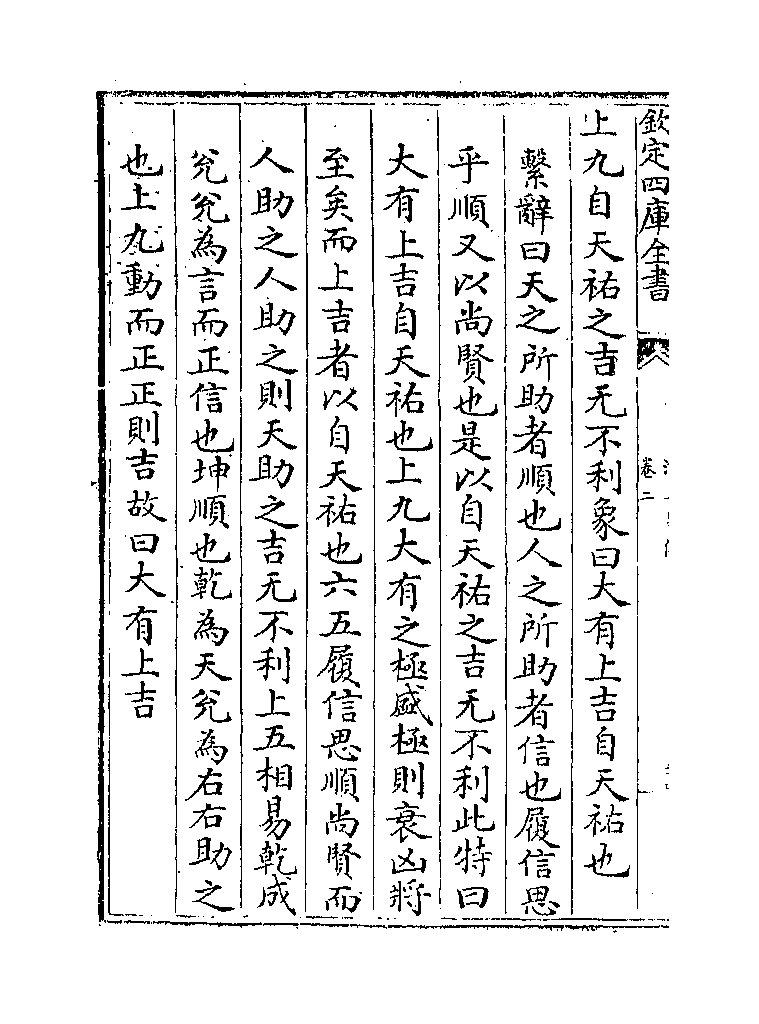 欽定四庫全書
卷二
上九自天祐之吉无不利象曰大有上吉自天祐也
繫辭曰天之所助者順也人之所助者信也履信思
乎順又以尚賢也是以自天祐之吉无不利此特曰
大有上吉自天祐也上九大有之極盛極則衰凶將
至矣而上吉者以自天祐也六五履信思順尚賢而
人助之人助之則天助之吉无不利上五相易乾成
兊兊為言而正信也坤順也乾為天兊為右右助之
也上九動而正正則吉故曰大有上吉